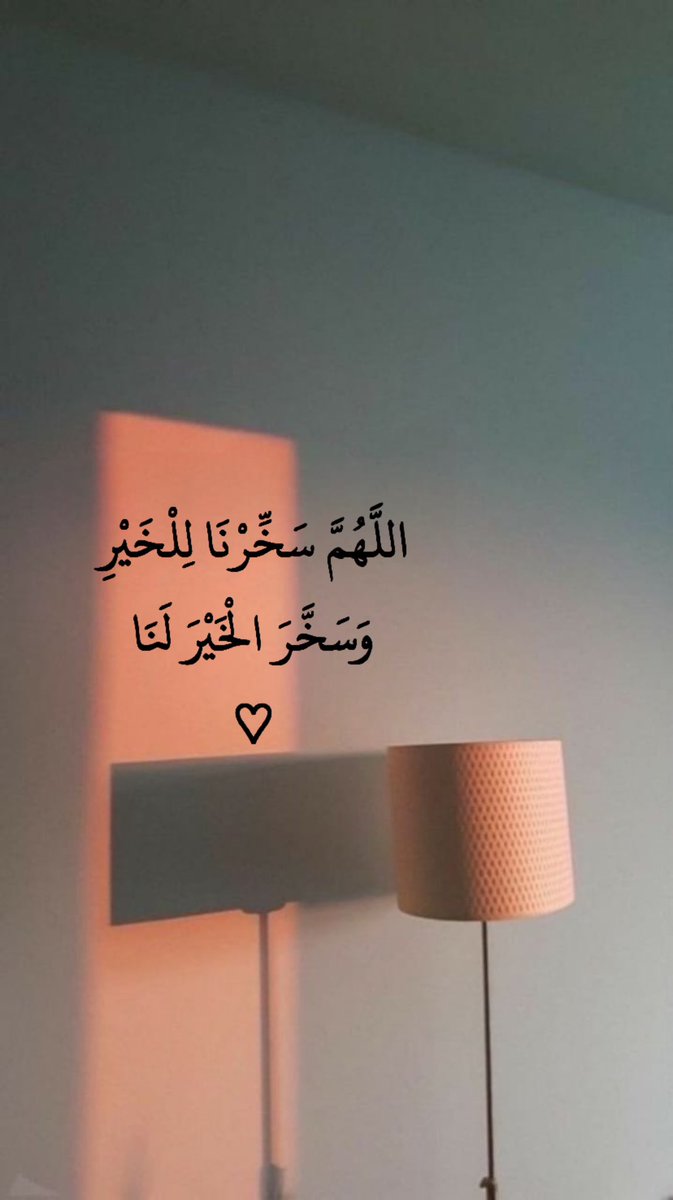 اللَّهُمَّ سَخِّرْنَا لِلْخَيْرِ
وَسَخَّرَ الْخَيْرَ لَنَا
♡